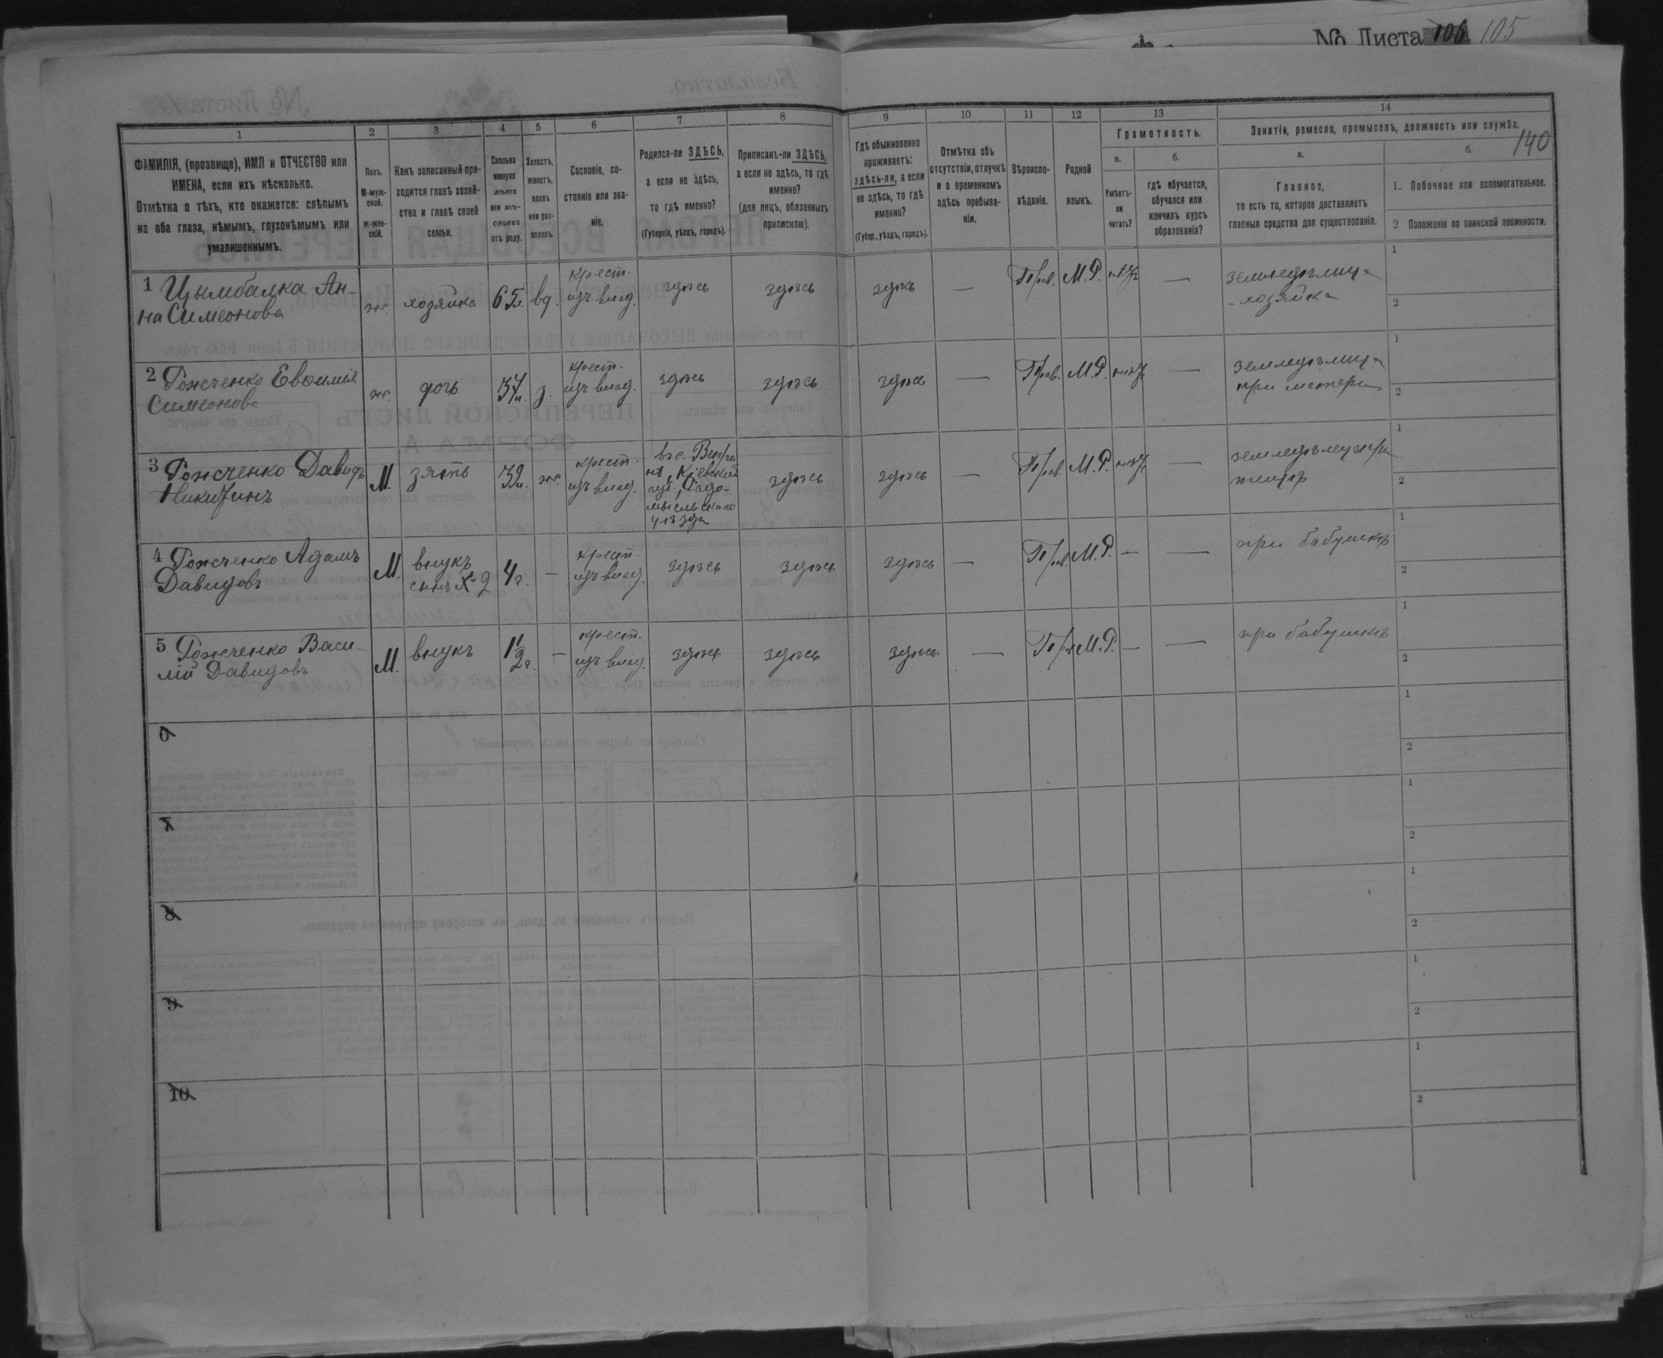 № Листа 106 105
140
1 2 3 4 5 6 7 8 9 10 11 12 13 14
ФАМИЛІЯ, (прозвище), ИМЯ и ОТЧЕСТВО или ИМЕНА, если ихъ нѣсколько.
Отмѣтка о тѣхъ, кто окажется: слѣпымъ на оба глаза, нѣмымъ, глухонѣмымъ или умалишеннымъ.
Полъ. М-мужской. Ж-женскій.
Какъ записанный приходится главѣ хозяйства и главѣ своей семьи.
Сколько минуло лѣтъ или мѣсяцевъ отъ роду.
Холостъ, женатъ, вдовъ или разведенъ.
Сословіе, состояніе или званіе.
Родился-ли ЗДѢСЬ, а если не здѣсь, то гдѣ именно?
(Губернія, уѣздъ, городъ).
Приписанъ-ли ЗДѢСЬ, а если не здѣсь, то гдѣ именно?
(для лицъ, обязанныхъ припискою).
Гдѣ обыкновенно проживаетъ: здѣсь-ли, а если не здѣсь, то гдѣ именно?
(Губер., уѣздъ, городъ).
Отмѣтка объ отсутствіи, отлучкѣ и о временномъ здѣсь пребываніи.
Вѣроисповѣданіе.
Родной языкъ.
Грамотность.
а. б.
Умѣетъ-ли читать?
гдѣ обучается, обучался или кончилъ курсъ образованія?
Занятіе, ремесло, промыселъ, должность или служба.
а. б.
Главное,
то есть то, которое доставляетъ главныя средства для существованія.
1. Побочное или вспомогательное.
2 Положеніе по воинской повинности.
1 Цымбалка Анна Симеонова ж. хозяйка 65л. вд. крест. изъ влад. здѣсь здѣсь здѣсь — Прав. М.Р. нѣтъ — земледѣлица - хозяйка 1 2
2 Рожченко Евфимія Симеонова ж. дочь 37л. з. крест. изъ влад. здѣсь здѣсь здѣсь — Прав. М.Р. нѣтъ — земледѣлица при матери 1 2
3 Рожченко Давидъ Никитинъ М. зять 32л. ж. крест. изъ влад. въ с. Кіевской губ., Радомысльскаго уѣзда здѣсь здѣсь — Прав. М.Р. нѣтъ — при 1 2
4 Рожченко Адамъ Давидовъ М. внукъ сынъ № 2 4г. — крест. изъ влад. здѣсь здѣсь здѣсь — Прав. М.Р. — — при бабушкѣ 1 2
5 Рожченко Василій Давидовъ М. внукъ 1½г. — крест. изъ влад. здѣсь здѣсь здѣсь — Прав. М.Р. — — при бабушкѣ 1 2
6 1 2
7 1 2
8 1 2
9 1 2
10 1 2